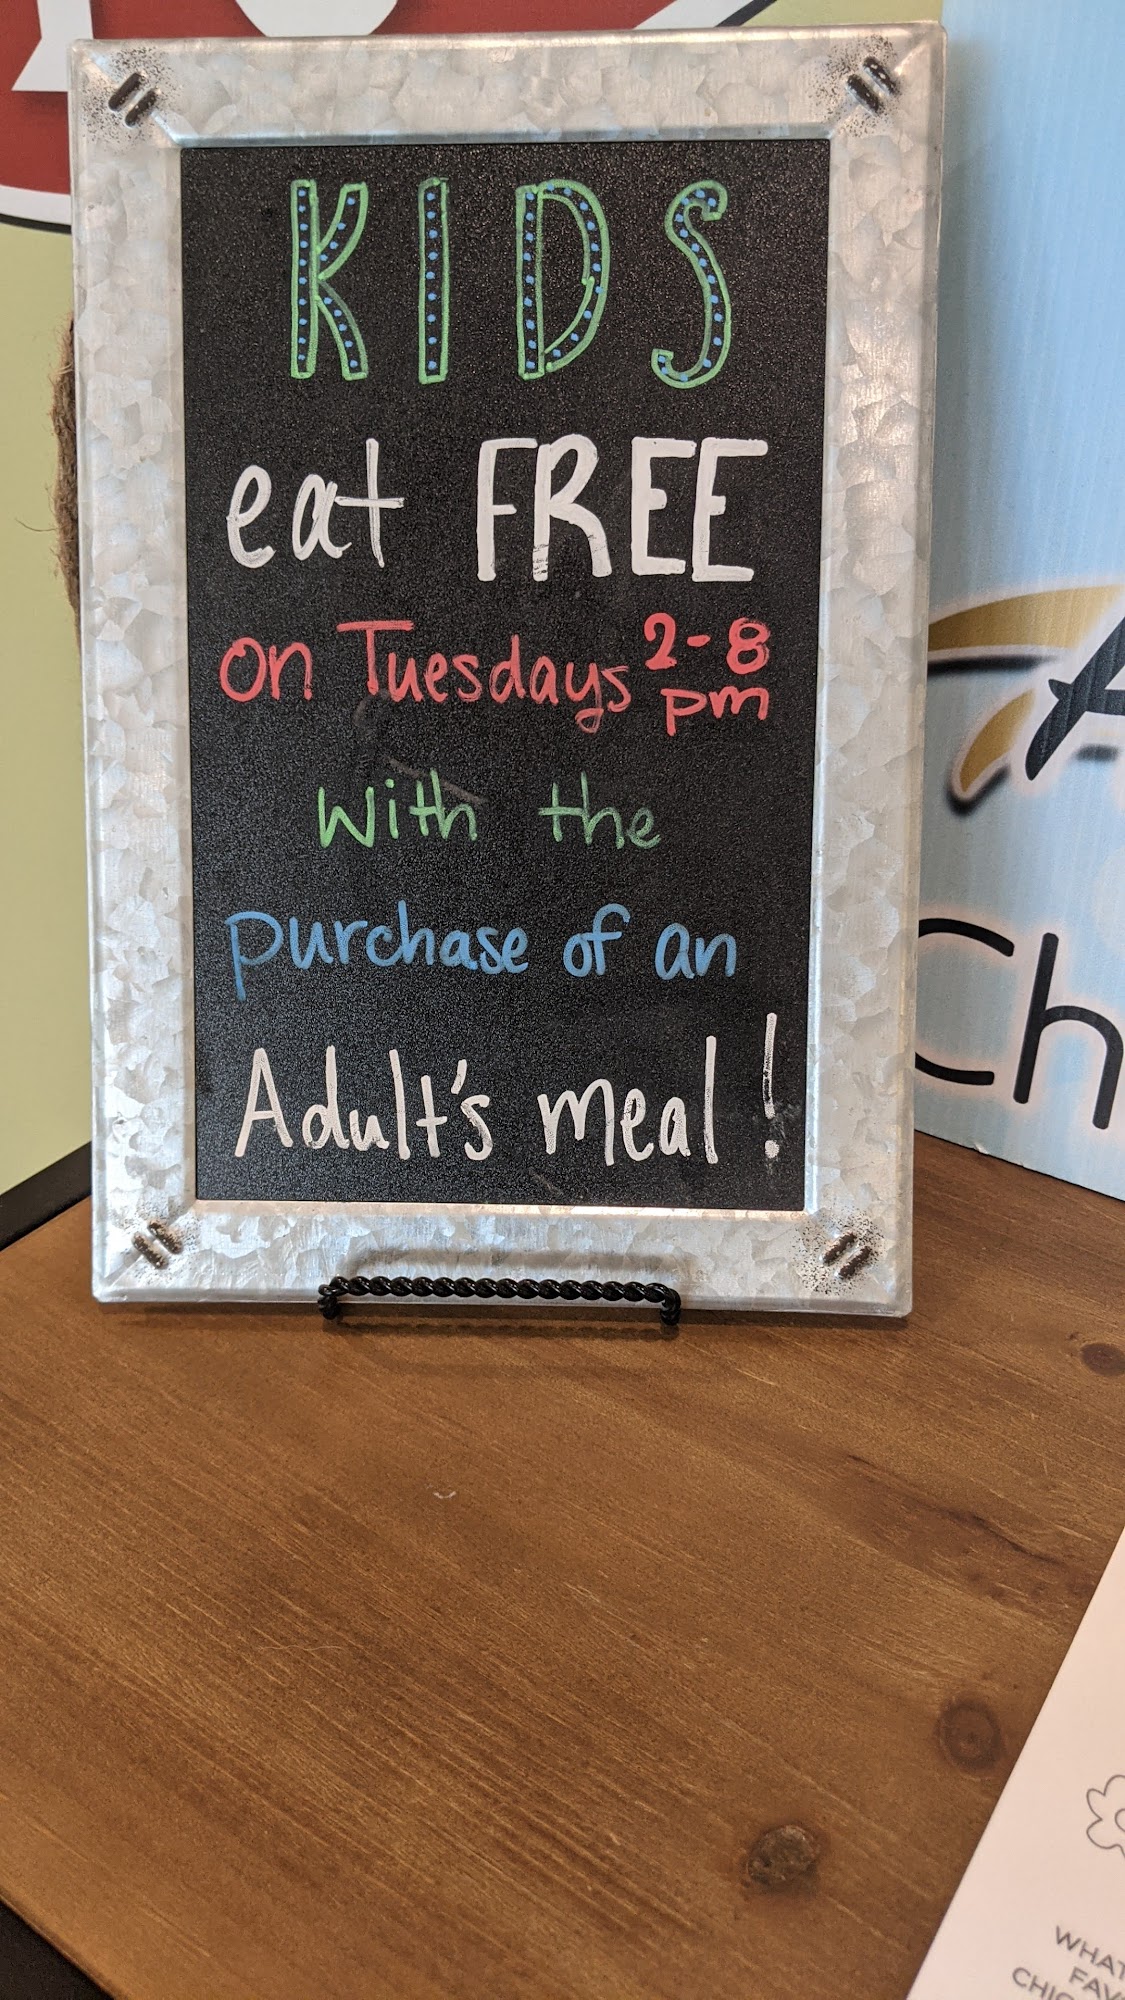 KIDS
eat FREE
on Tuesdays 2-8
pm
with the
purchase of an
Adult's meal!
Ch
WHAT
FAV
CHIC